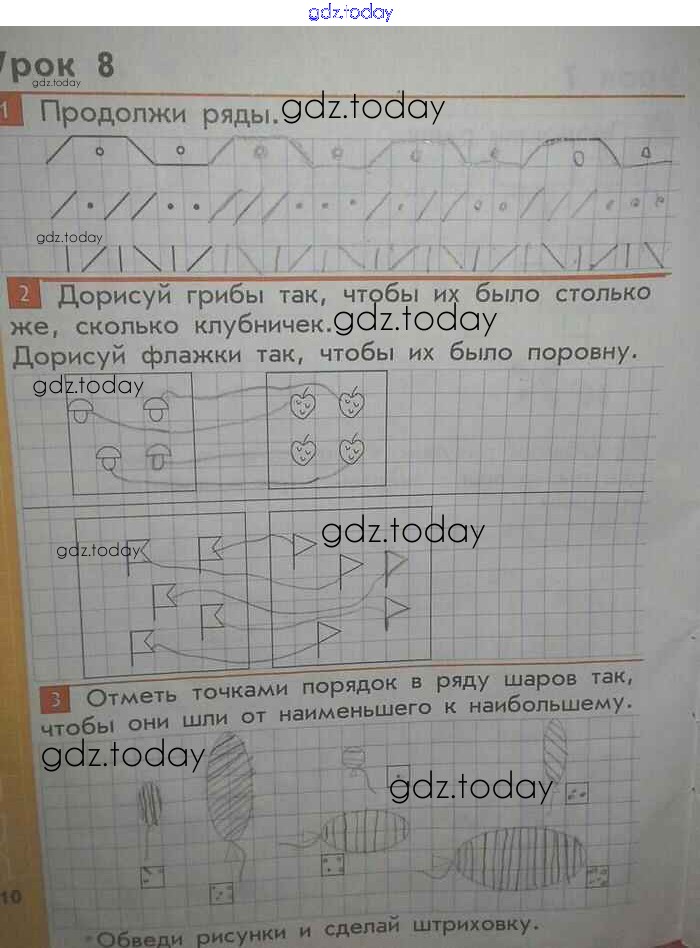 gdz.today
Урок 8
gdz.today
1 Продолжи ряды. gdz.today
gdz.today
2 Дорисуй грибы так, чтобы их было столько
же, сколько клубничек. gdz.today
Дорисуй флажки так, чтобы их было поровну.
gdz.today
gdz.today
gdz.today
3 Отметь точками порядок в ряду шаров так,
чтобы они шли от наименьшего к наибольшему.
gdz.today
gdz.today
10
*Обведи рисунки и сделай штриховку.